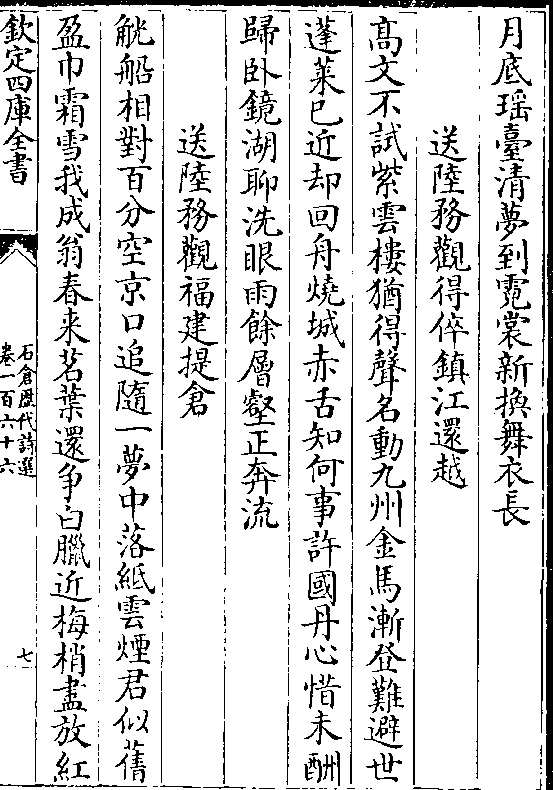 月底瑶臺清夢到霓裳新換舞衣長
送陸務觀得倅鎮江還越
髙文不試紫雲樓猶得聲名動九州金馬漸登難避世
蓬萊已近却回舟燒城赤舌知何事許國丹心惜未酬
歸卧鏡湖聊洗眼雨餘層壑正奔流
送陸務觀福建提倉
觥船相對百分空京口追隨一夢中落紙雲煙君似舊
盈巾霜雪我成翁春来茗葉還爭白臘近梅梢盡放紅
欽定四庫全書
石倉歴代詩選
卷一百六十六
七